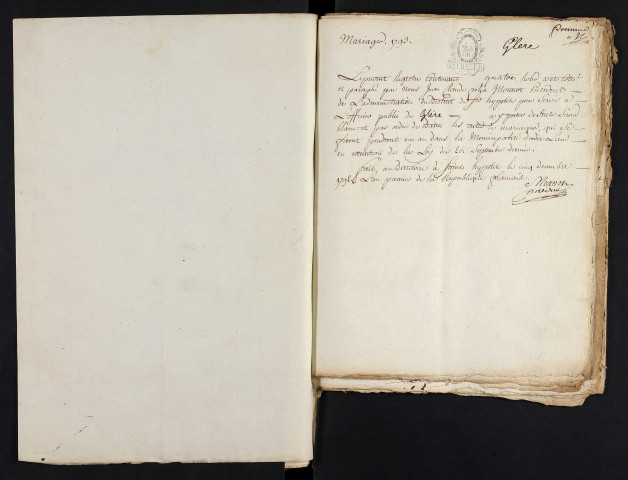 Mariages 1793.
Glere
premier
Le present Registre contenant quatre
et paraphé par nous Jean Claude Monnot President
de L'administration du district de St hypolite pour servir à
L'officier public de Glère à y
blanc et par ordre de dattes les actes de mariages qui se
feront pendant un an dans la Municipalité dudit Lieu
en execution de la Loy du 20 Septembre dernier.
fait au Directoire à Saint hypolite le cinq decembre
1792 L'an premier de la Republique françoise.
Monnot
president